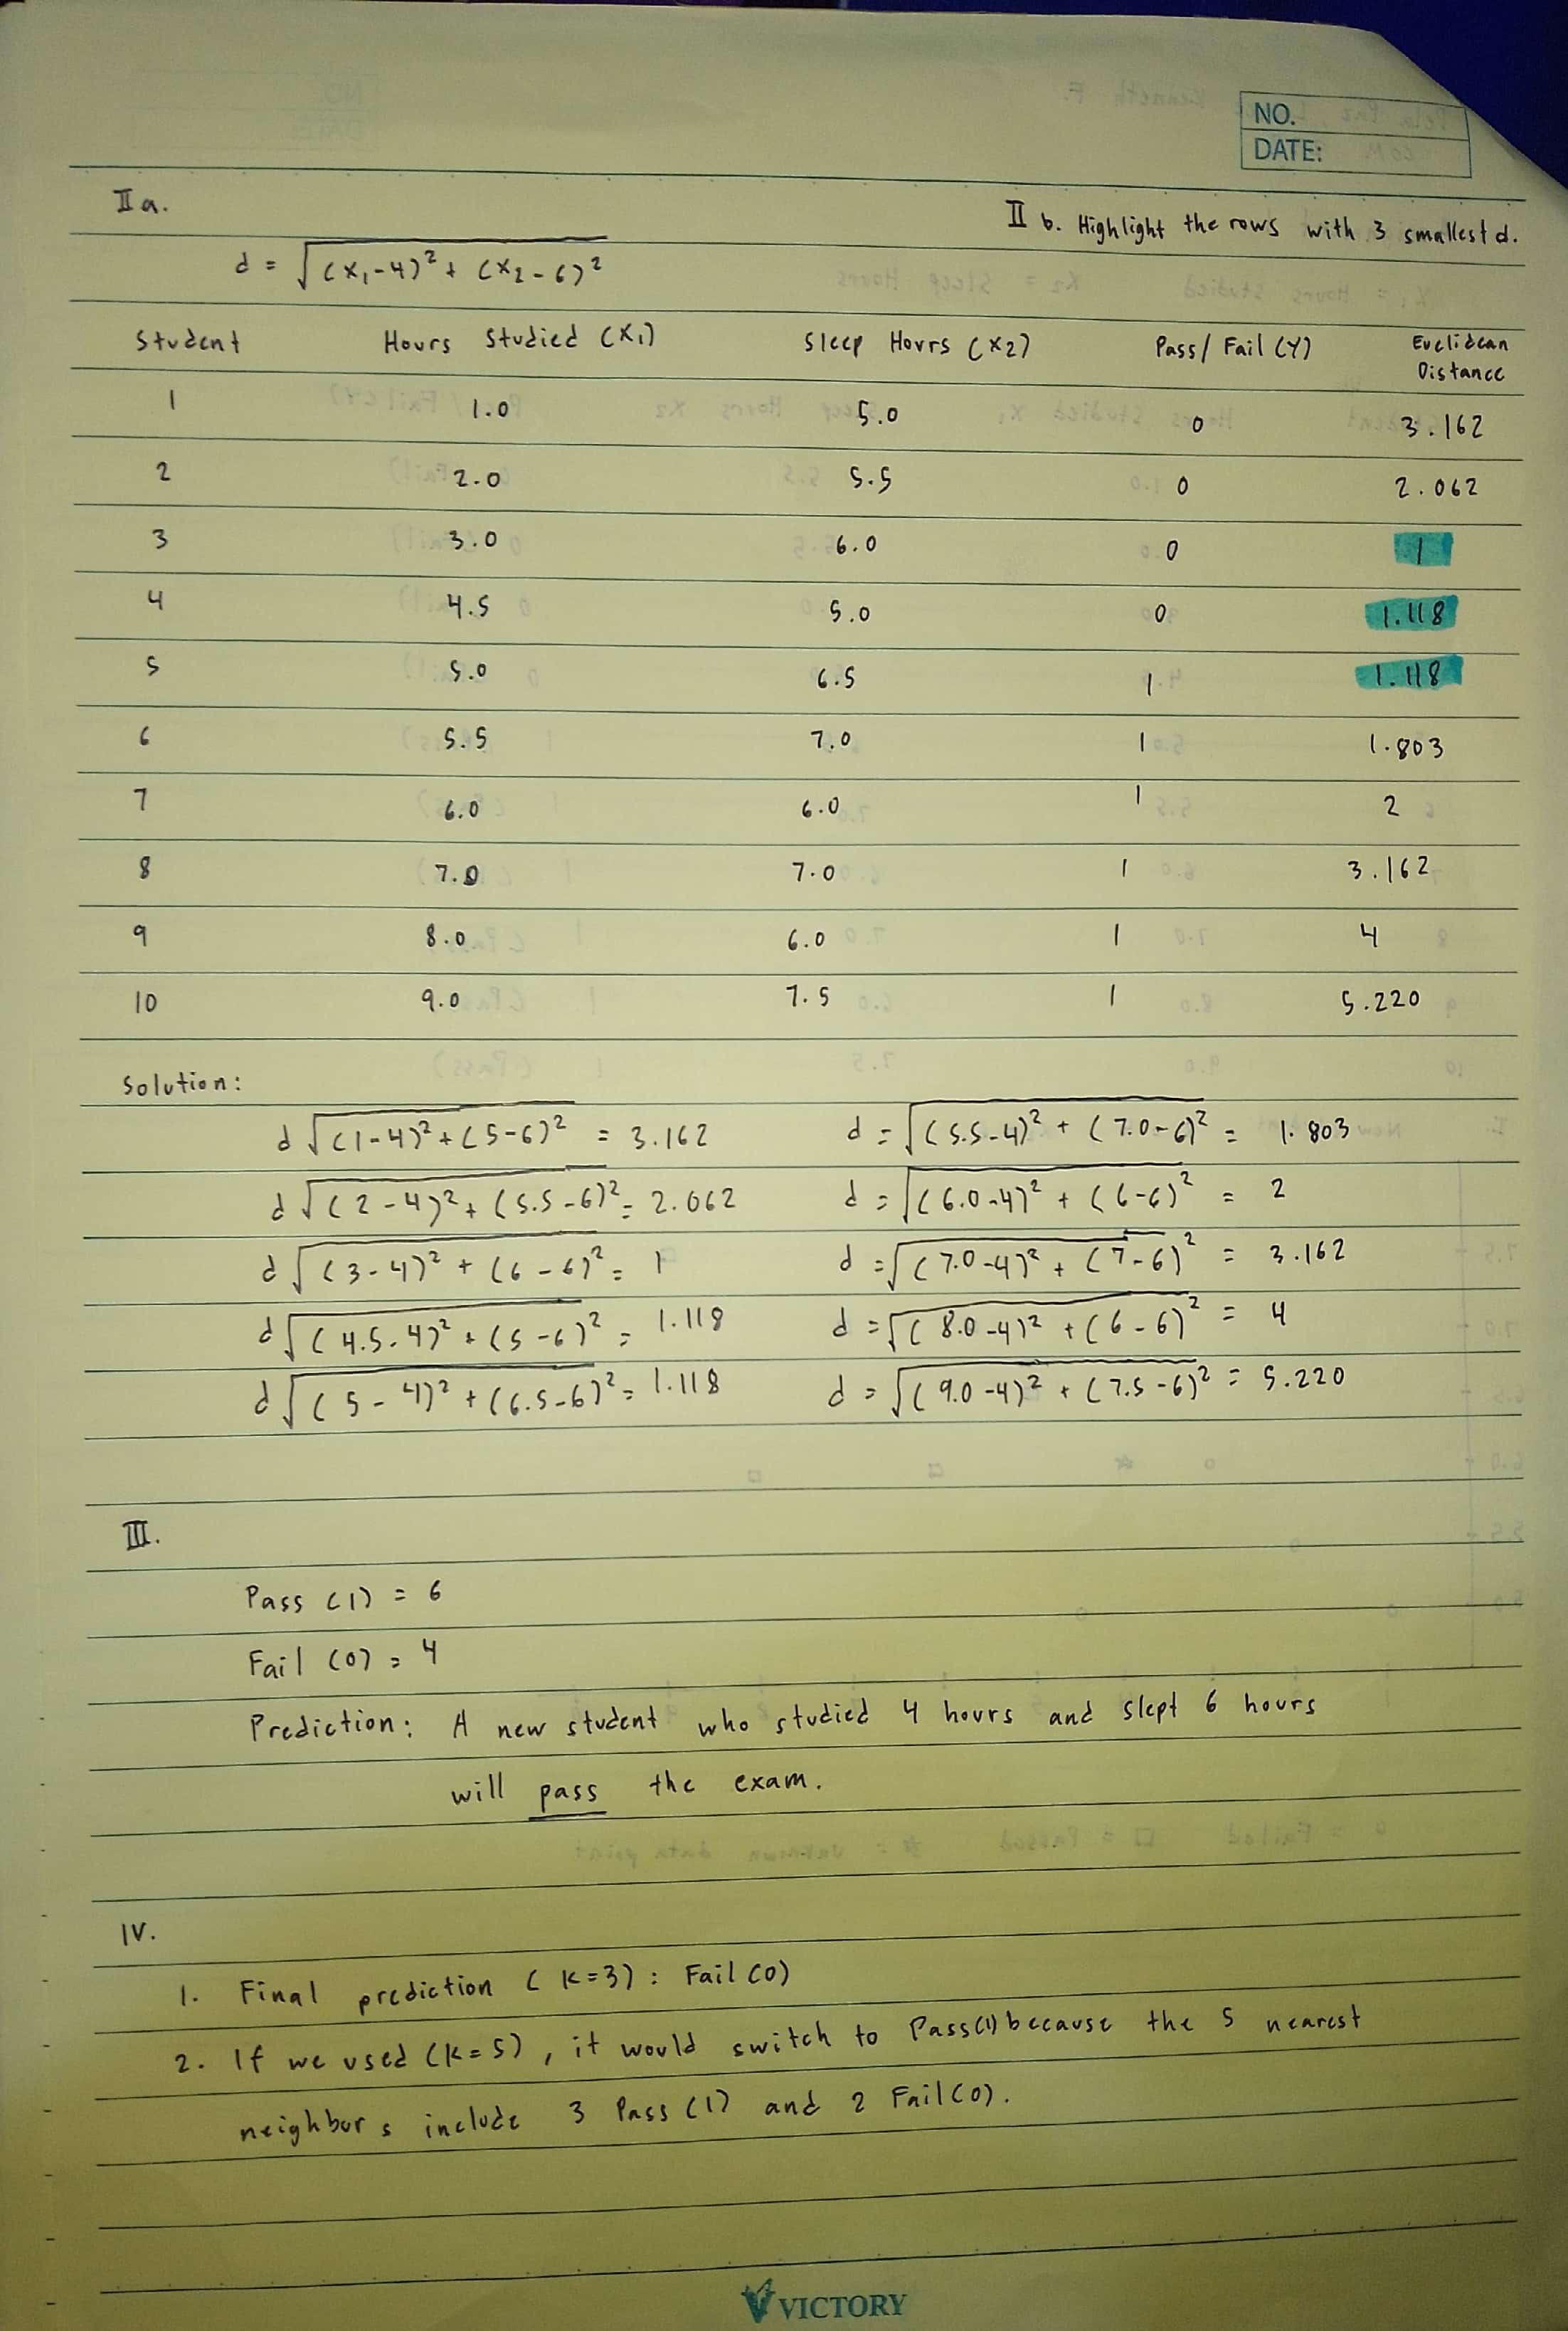 NO.
DATE:
II a.
II b. Highlight the rows with 3 smallest d.
d = √(x₁-4)² + (x₂-6)²
Student Hours Studied (X₁) Sleep Hours (X2) Pass/Fail (Y) Euclidean Distance
1 1.0 5.0 0 3.162
2 2.0 5.5 0 2.062
3 3.0 6.0 0 1
4 4.5 5.0 0 1.118
5 5.0 6.5 1 1.118
6 5.5 7.0 1 1.803
7 6.0 6.0 1 2
8 7.0 7.0 1 3.162
9 8.0 6.0 1 4
10 9.0 7.5 1 5.220
Solution:
d √(1-4)²+(5-6)² = 3.162 d = √(5.5-4)² + (7.0-6)² = 1.803
d √(2-4)²+(5.5-6)² = 2.062 d = √(6.0-4)² + (6-6)² = 2
d √(3-4)² + (6-6)² = 1 d = √(7.0-4)² + (7-6)² = 3.162
d √(4.5-4)² + (5-6)² = 1.118 d = √(8.0-4)² + (6-6)² = 4
d √(5-4)² + (6.5-6)² = 1.118 d = √(9.0-4)² + (7.5-6)² = 5.220
III.
Pass (1) = 6
Fail (0) = 4
Prediction: A new student who studied 4 hours and slept 6 hours
will pass the exam.
IV.
1. Final prediction (K=3): Fail (0)
2. If we used (K=5), it would switch to Pass(1) because the 5 nearest
neighbors include 3 Pass (1) and 2 Fail(0).
VICTORY